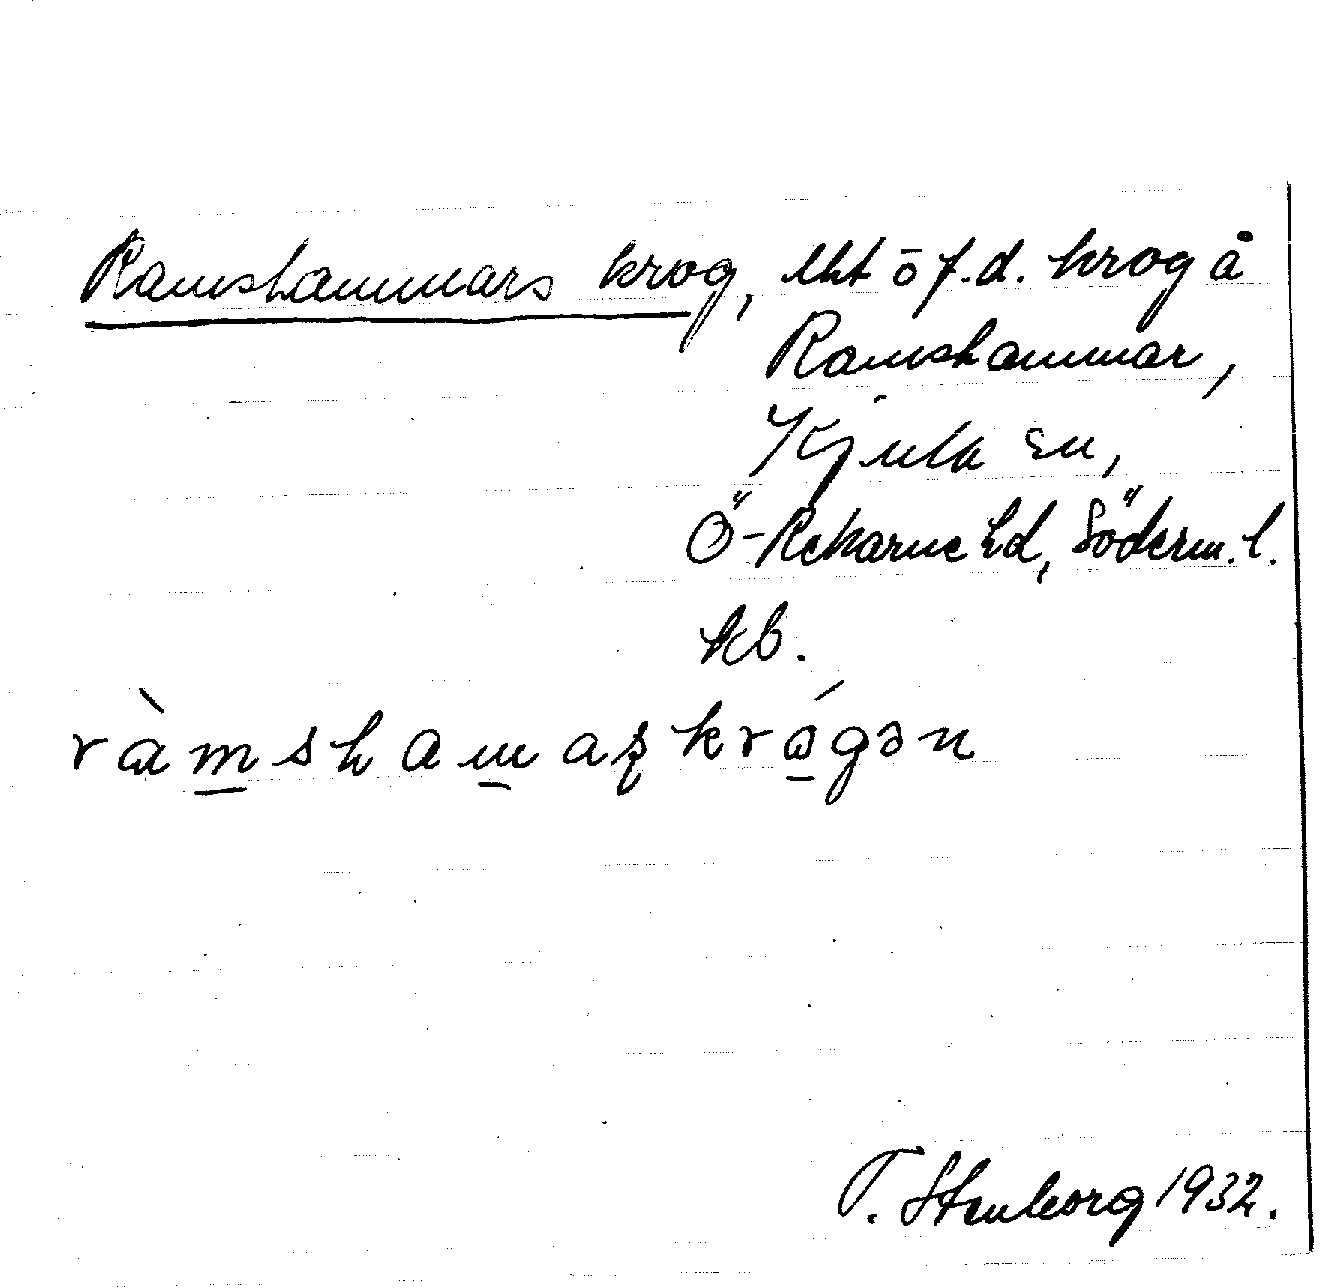 Ramshammars krog, lht ō f.d. krog å
Ramshammar,
Kjula sn,
Ö-Rekarne hd, Söderm. l.
kb.
ràmshamaʂkrágən
T. Stenborg 1932.